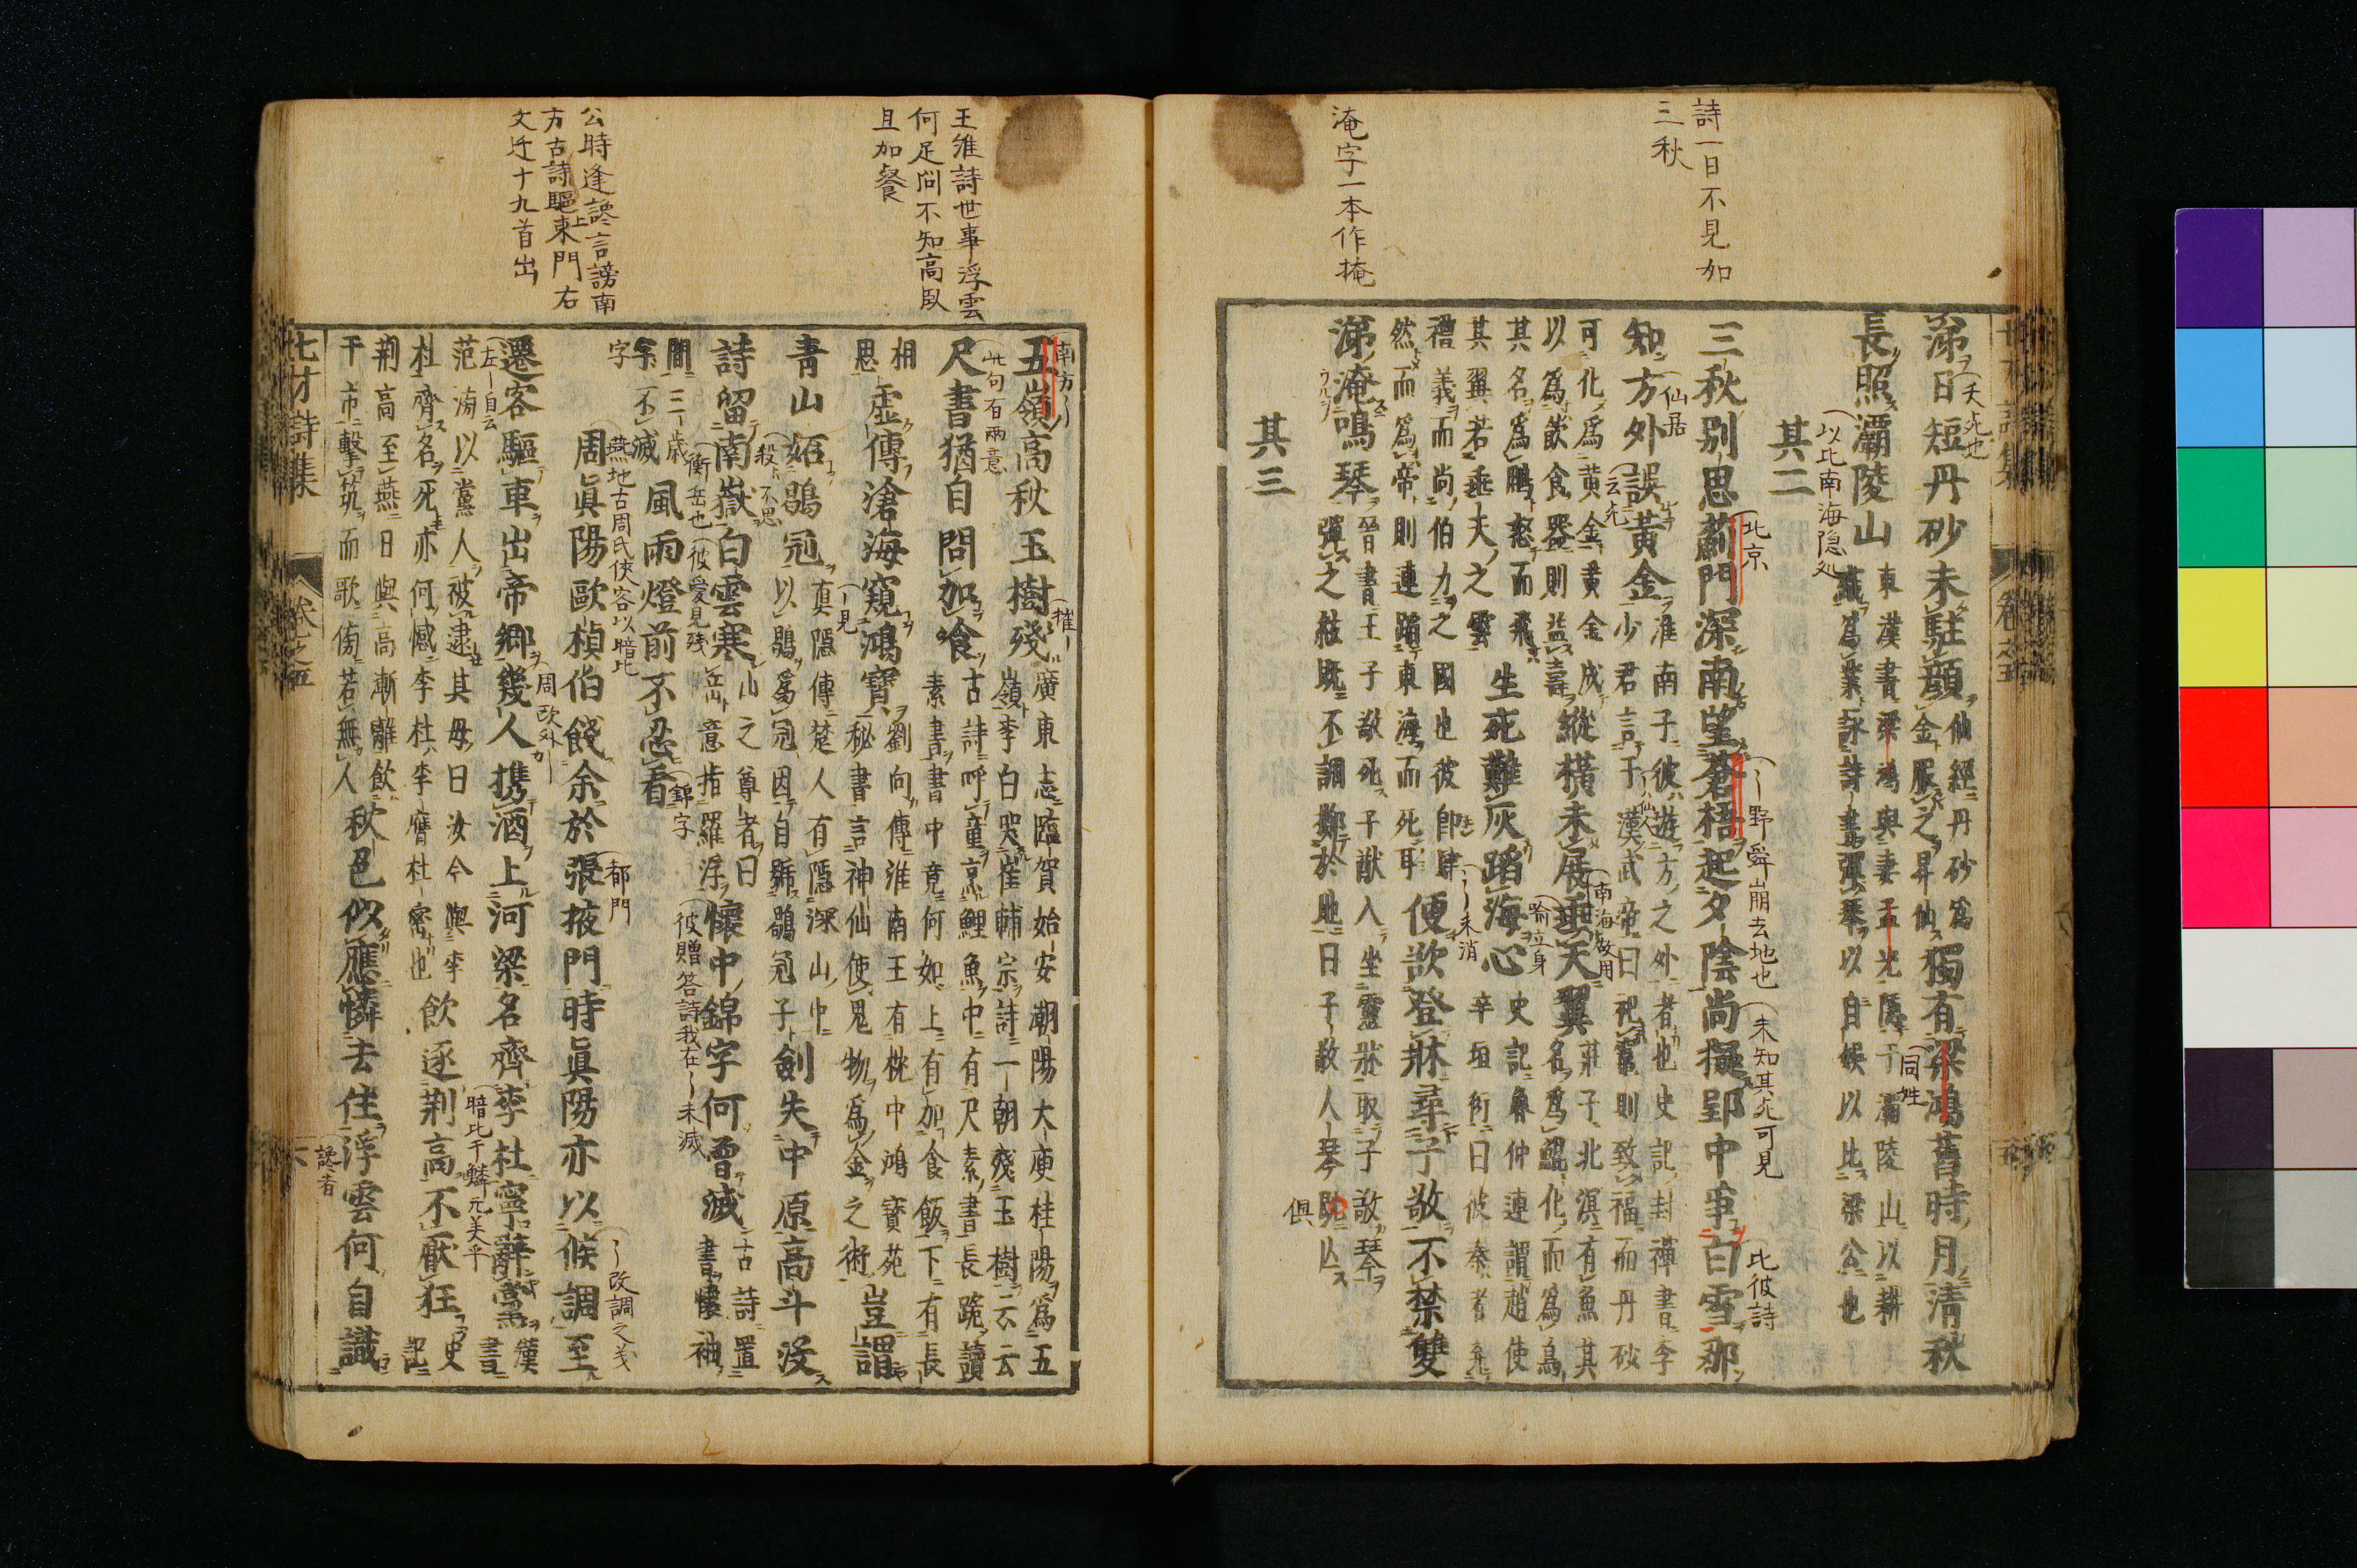 詩一日不見如
三秋
淹字一本作掩
涕日短丹砂未駐顔
仙經丹砂爲
金服之昇仙
獨有梁鴻舊時月清秋
長照灞陵山
東漢書梁鴻與妻孟光隱于灞陵山以耕
織爲業詠詩書彈琴以自娯以比梁公也
其二
三秋别思薊門深南望蒼梧起夕陰尚擬郢中亊白雪那
知方外誤黃金
淮南子彼遊方之外者也史記封禪書李
少君言于漢武帝曰祀竈則致福而丹砂
可化爲黄金黄金成
以爲飲食器則益壽
縱橫未展垂天翼
莊子北溟有魚其
名爲鯤化而爲鳥
其名爲鵬怒而飛
其翼若垂天之雲
生死難灰蹈海心
史記魯仲連謂趙使
辛垣衍曰彼秦者棄
禮義而尚
伯力之國也彼即肆
然而爲帝則連蹈東海而死耳
便欲登牀尋子敬不禁雙
涕淹鳴琴
晉書王子敬死子猷入坐靈牀取子敬琴
彈之絃既不調擲於地曰子敬人琴
俱
其三
北京
仙居
同姓
未知其死可見
比彼詩
以比南海隠処
野舜崩去地也
王維詩世事浮雲
何足问不知高臥
且加餐
公時逢讒言謗南
方古詩驅上東門右
文迁十九首出
五嶺高秋玉樹殘
廣東志臨賀始安潮陽大庾桂陽爲五
嶺李白哭崔輔宗詩一朝殘玉樹云云
尺書猶自問加飡
古詩呼童烹鯉魚中有尺素書長跪讀
素書書中竟何如上有加食飯下有長
相
思
虚傳滄海窺鴻寶
劉向傳淮南王有枕中鴻寳苑
秘書言神仙使鬼物爲金之術
豈謂
青山妬鶡冠
眞隱傳楚人有隱深山中
以鶡爲冠因自號鶡冠子
劍失中原高斗没
詩留南嶽白雲寒
山之尊者曰
岳意指羅浮
懷中錦字何曾滅
古詩置
書懷袖
間三歳
字不滅
風雨燈前不忍看
周眞陽歐楨伯餞余於張掖門時眞陽亦以候調至
遷客驅車出帝鄉幾人携酒上河梁名齊李杜寧辭黨
漢
書
范滂以黨人被逮其母曰汝今與李
杜齊名死亦何憾李杜李膺杜密也
飲逐荊高不厭狂
史
記
荊高至燕日與高漸離飲
于市擊筑而歌傍若無人
秋色似應憐去住浮雲何自識
七才詩集
卷之五
南方
此句有兩意
衡岳也
彼愛見残
錦字
彼贈答詩我在未滅
燕地古周氏侠客以暗比
都門
改調之義
左自云
暗比于鱗元美乎
讒者